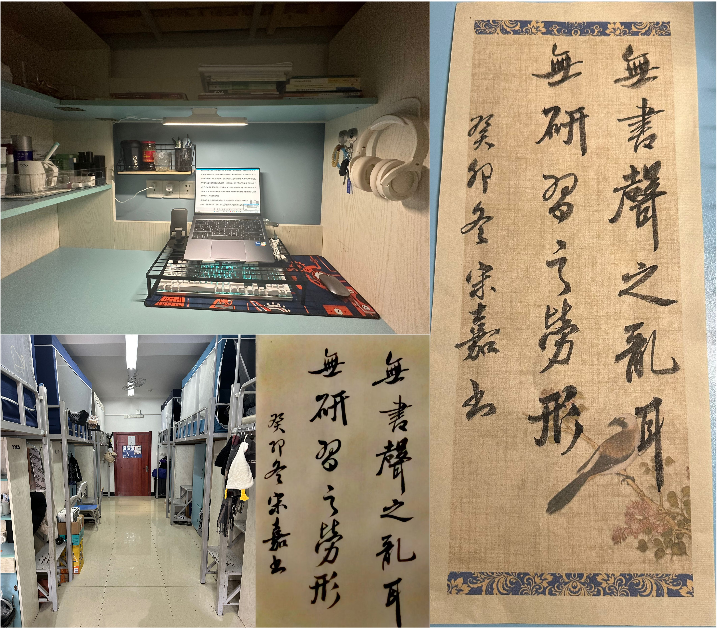 無書聲之亂耳
無研習之勞形
癸卯冬宋嘉书
無書聲之亂耳
無研習之勞形
癸卯冬宋嘉书